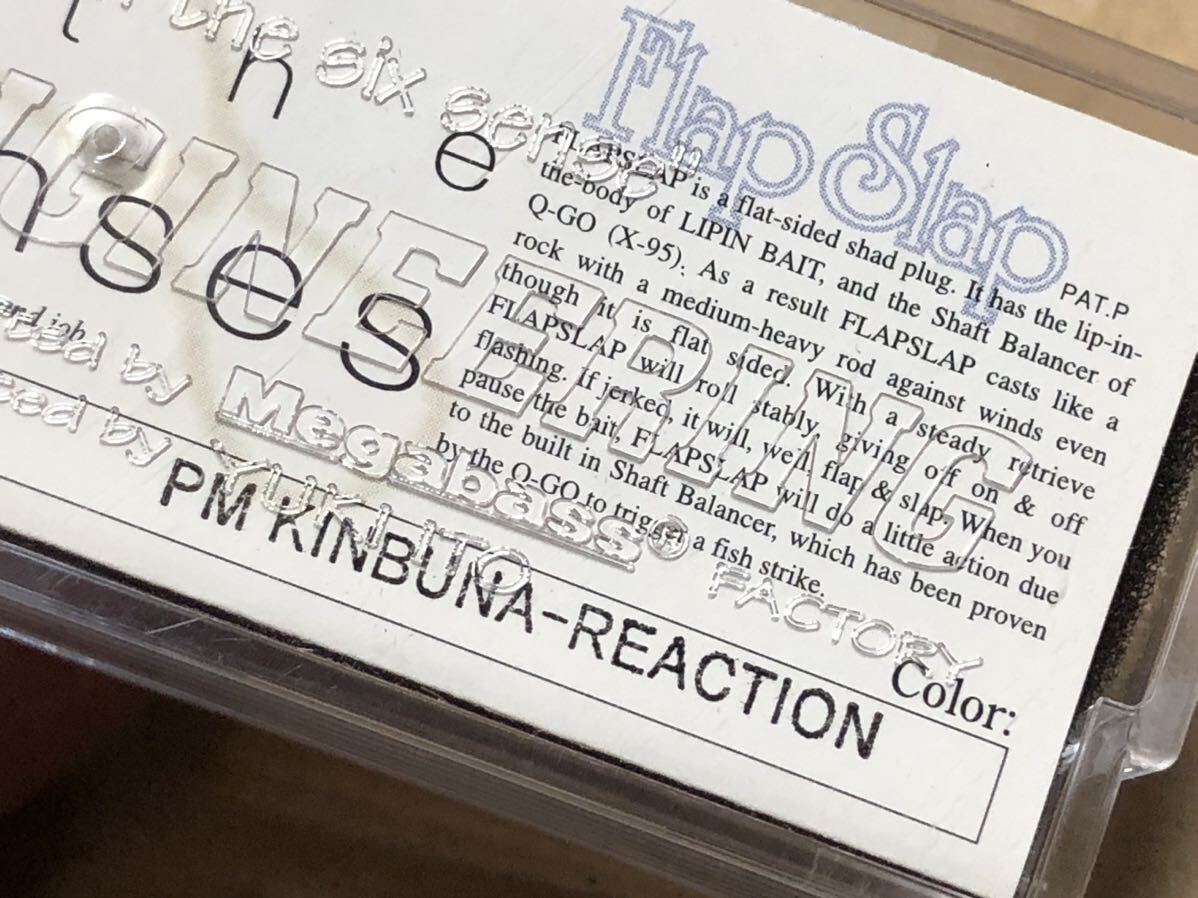 Flap Slap
PAT.P
FLAPSLAP is a flat-sided shad plug. It has the lip-in-
the-body of LIPIN BAIT, and the Shaft Balancer of
Q-GO (X-95). As a result FLAPSLAP casts like a
rock with a medium-heavy rod against winds even
though it is flat sided. With a steady retrieve
FLAPSLAP will roll stably, giving off on & off
flashing. If jerked, it will, well, flap & slap. When you
pause the bait, FLAPSLAP will do a little action due
to the built in Shaft Balancer, which has been proven
by the Q-GO to trigger a fish strike.
Color:
PM KINBUNA-REACTION
the six sense"
t h e
nses
GINEERING
by Megabass® FACTORY
by YUKI ITO